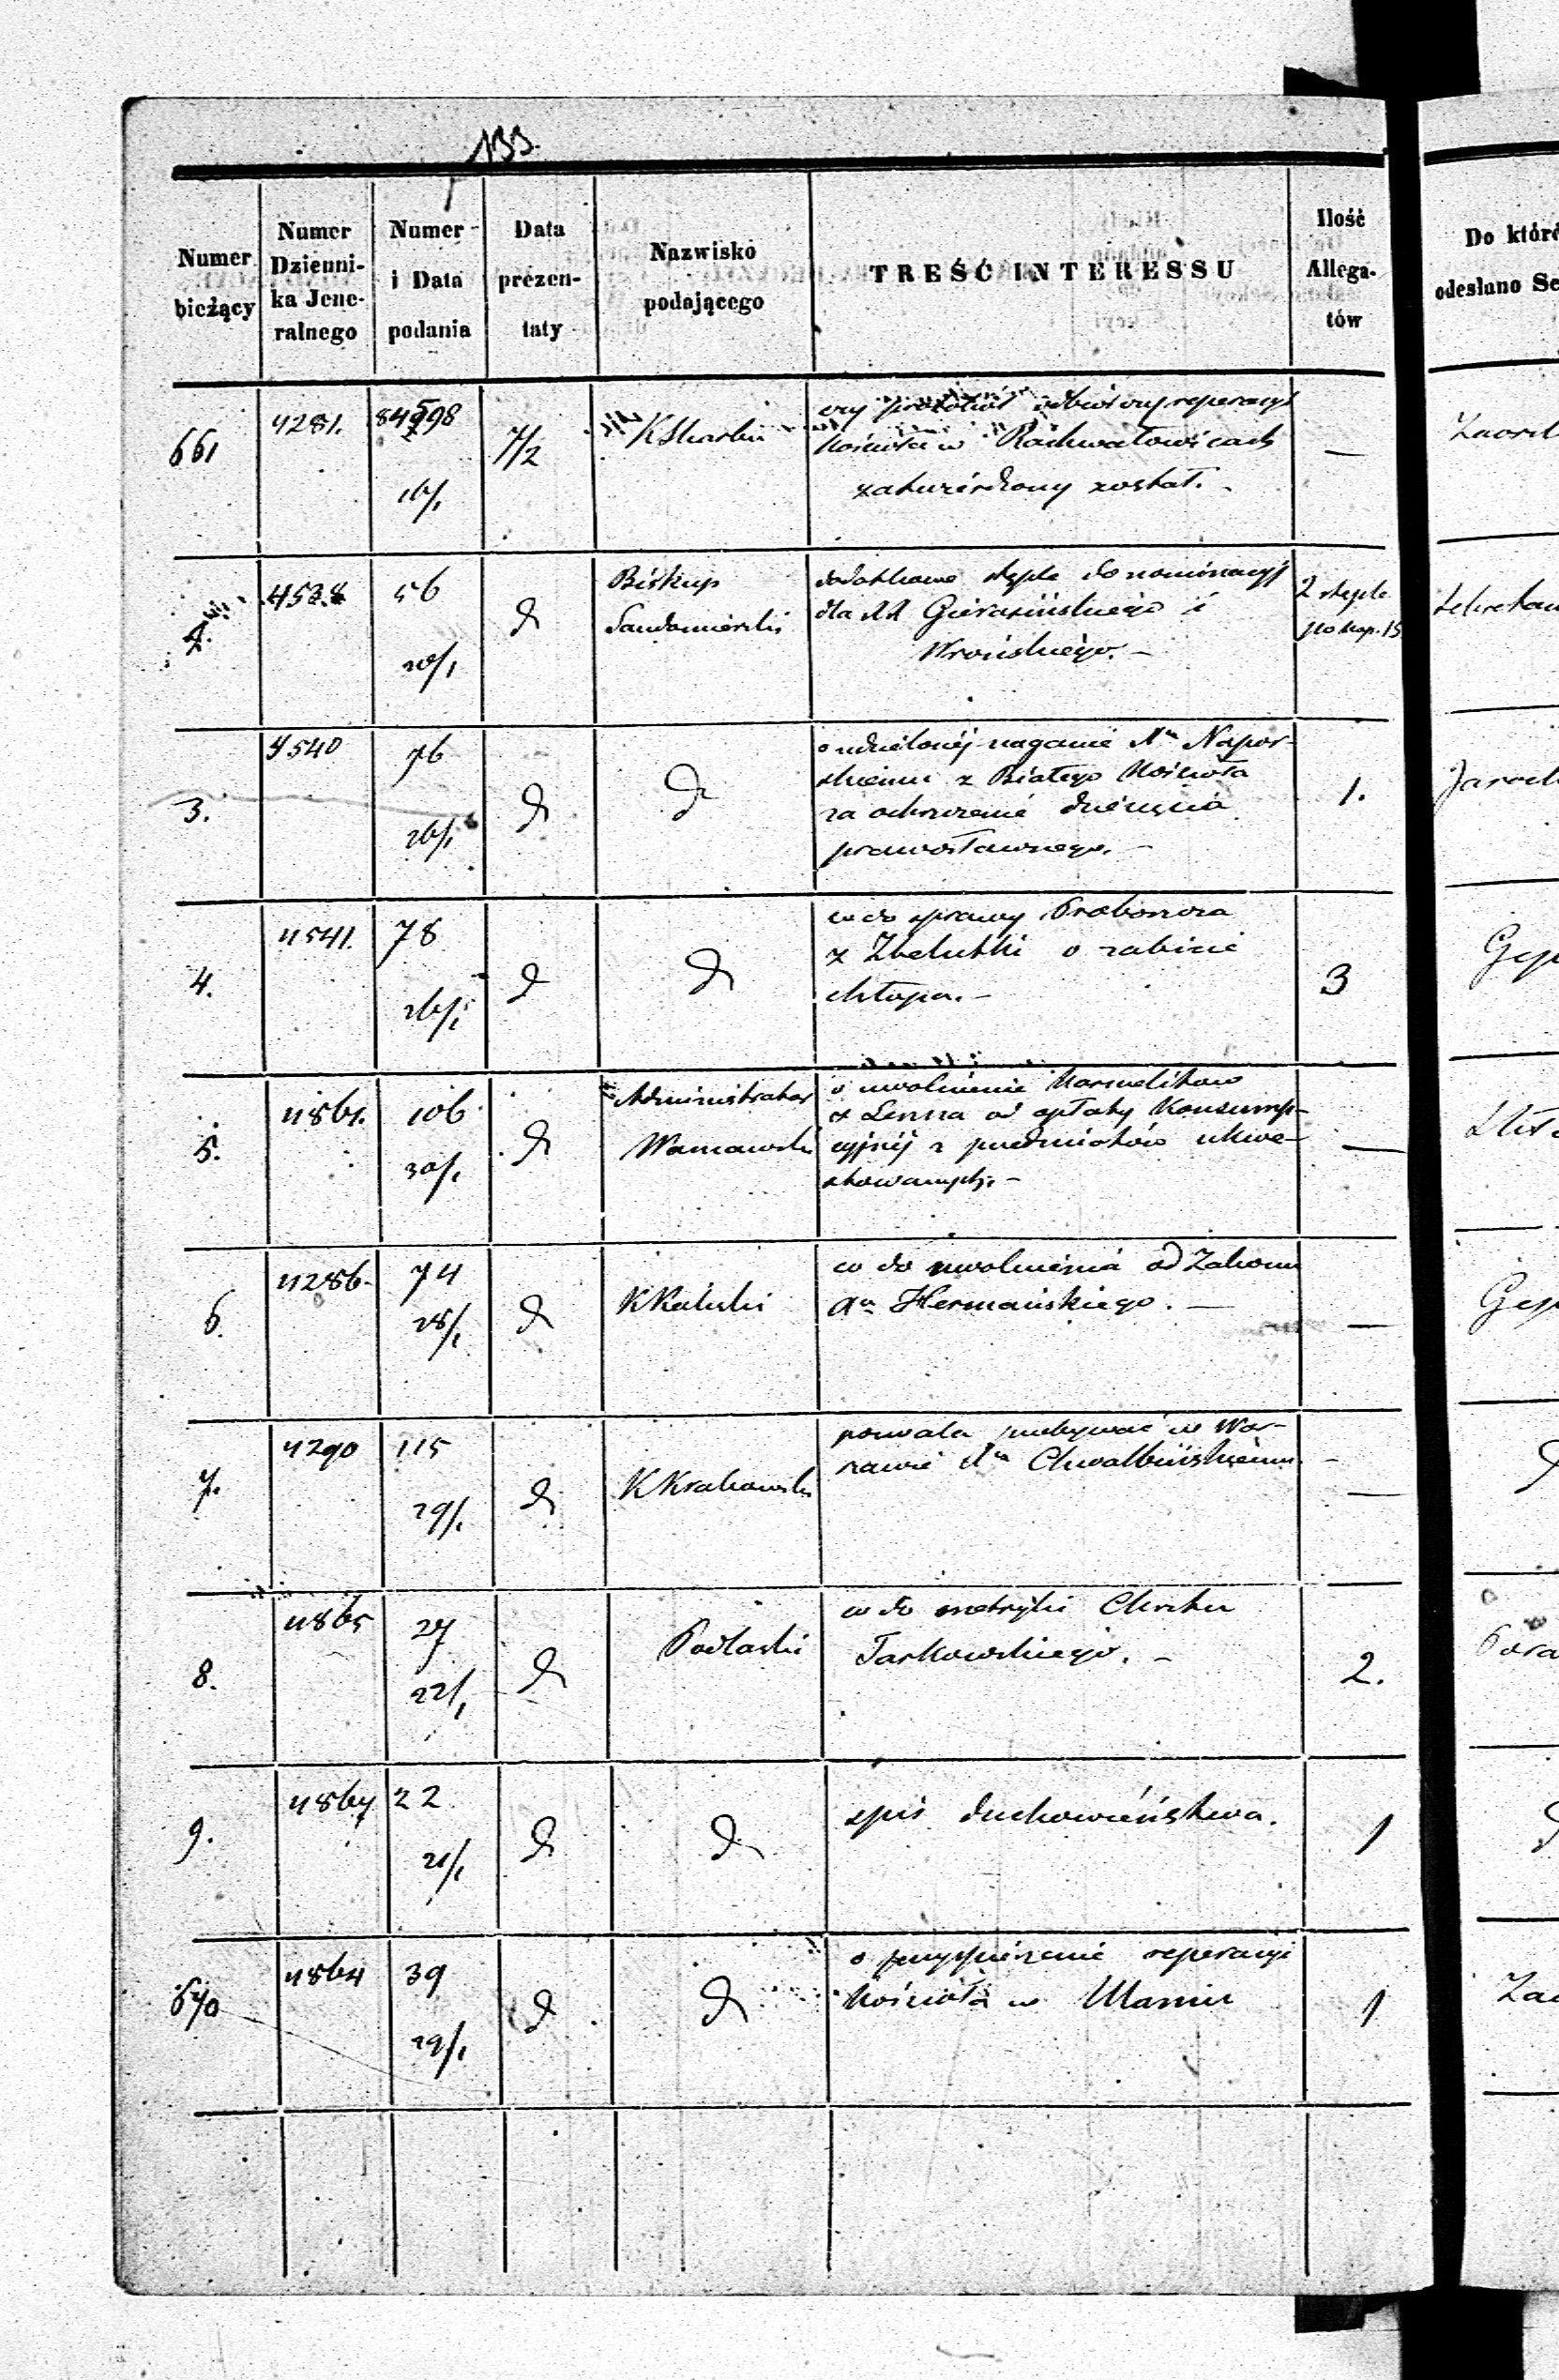 133.
Numer bieżący
Numer Dzienni- ka Jene- ralnego
Numer i Data podania
Data prezen- taty
Nazwisko podającego
TREŚĆ INTERESSU
Ilość Allega- tów
Do któré
odesłano Se
661
4281.
1/1
7/2
K Skarbu
czy protokół odbiorczy reperacyi
Kościoła w Rachwałowicach
zatwierdzony został. -
—
2.
4538
56
20/1
D
Biskup
Sandomierski
dodatkowe stęple do nominacyj
dla XX Gierasińskiego i
Wrońskiego. -
2 stęple
po kop. 15
3.
4540
76
26/1
D
D
o udzielonéj naganie Xu Napor-
skiemu z Białego Kościoła
za ochrzczenie dziecięcia
prawosławnego. -
1.
4.
4541.
78
26/1
D
D
co do sprawy Proboszcza
z Zbelutki o zabicie
chłopa. -
3
5.
4861.
106
30/1
D
Administrator
Warszawski
o uwolnienie Karmelitów
z Leszna od opłaty Konsump-
cyjnéj z przedmiotów
-
—
6.
4286.
74
28/1
D
K Kaliski
co do uwolnienia od Zakonu
Xa Hermańskiego. —
—
7.
4290
115
29/1
D
K Krakowski
pozwala przebywać w War-
szawie Xu Chwalbińskiemu. -
—
8.
4865
27
22/1
D
Podlaski
co do metryki Chrztu
Tarkowskiego. -
2.
9.
4867
22
21/1
D
D
spis duchowieństwa.
1
670
4864
39
29/1
D
D
o przyspieszenie reperacyi
Kościoła w Ulaniu
1